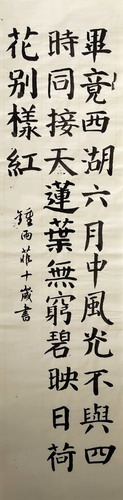 畢竟西湖六月中風光不與四
時同接天蓮葉無窮碧映日荷
花别樣紅
鍾雨菲十歲書